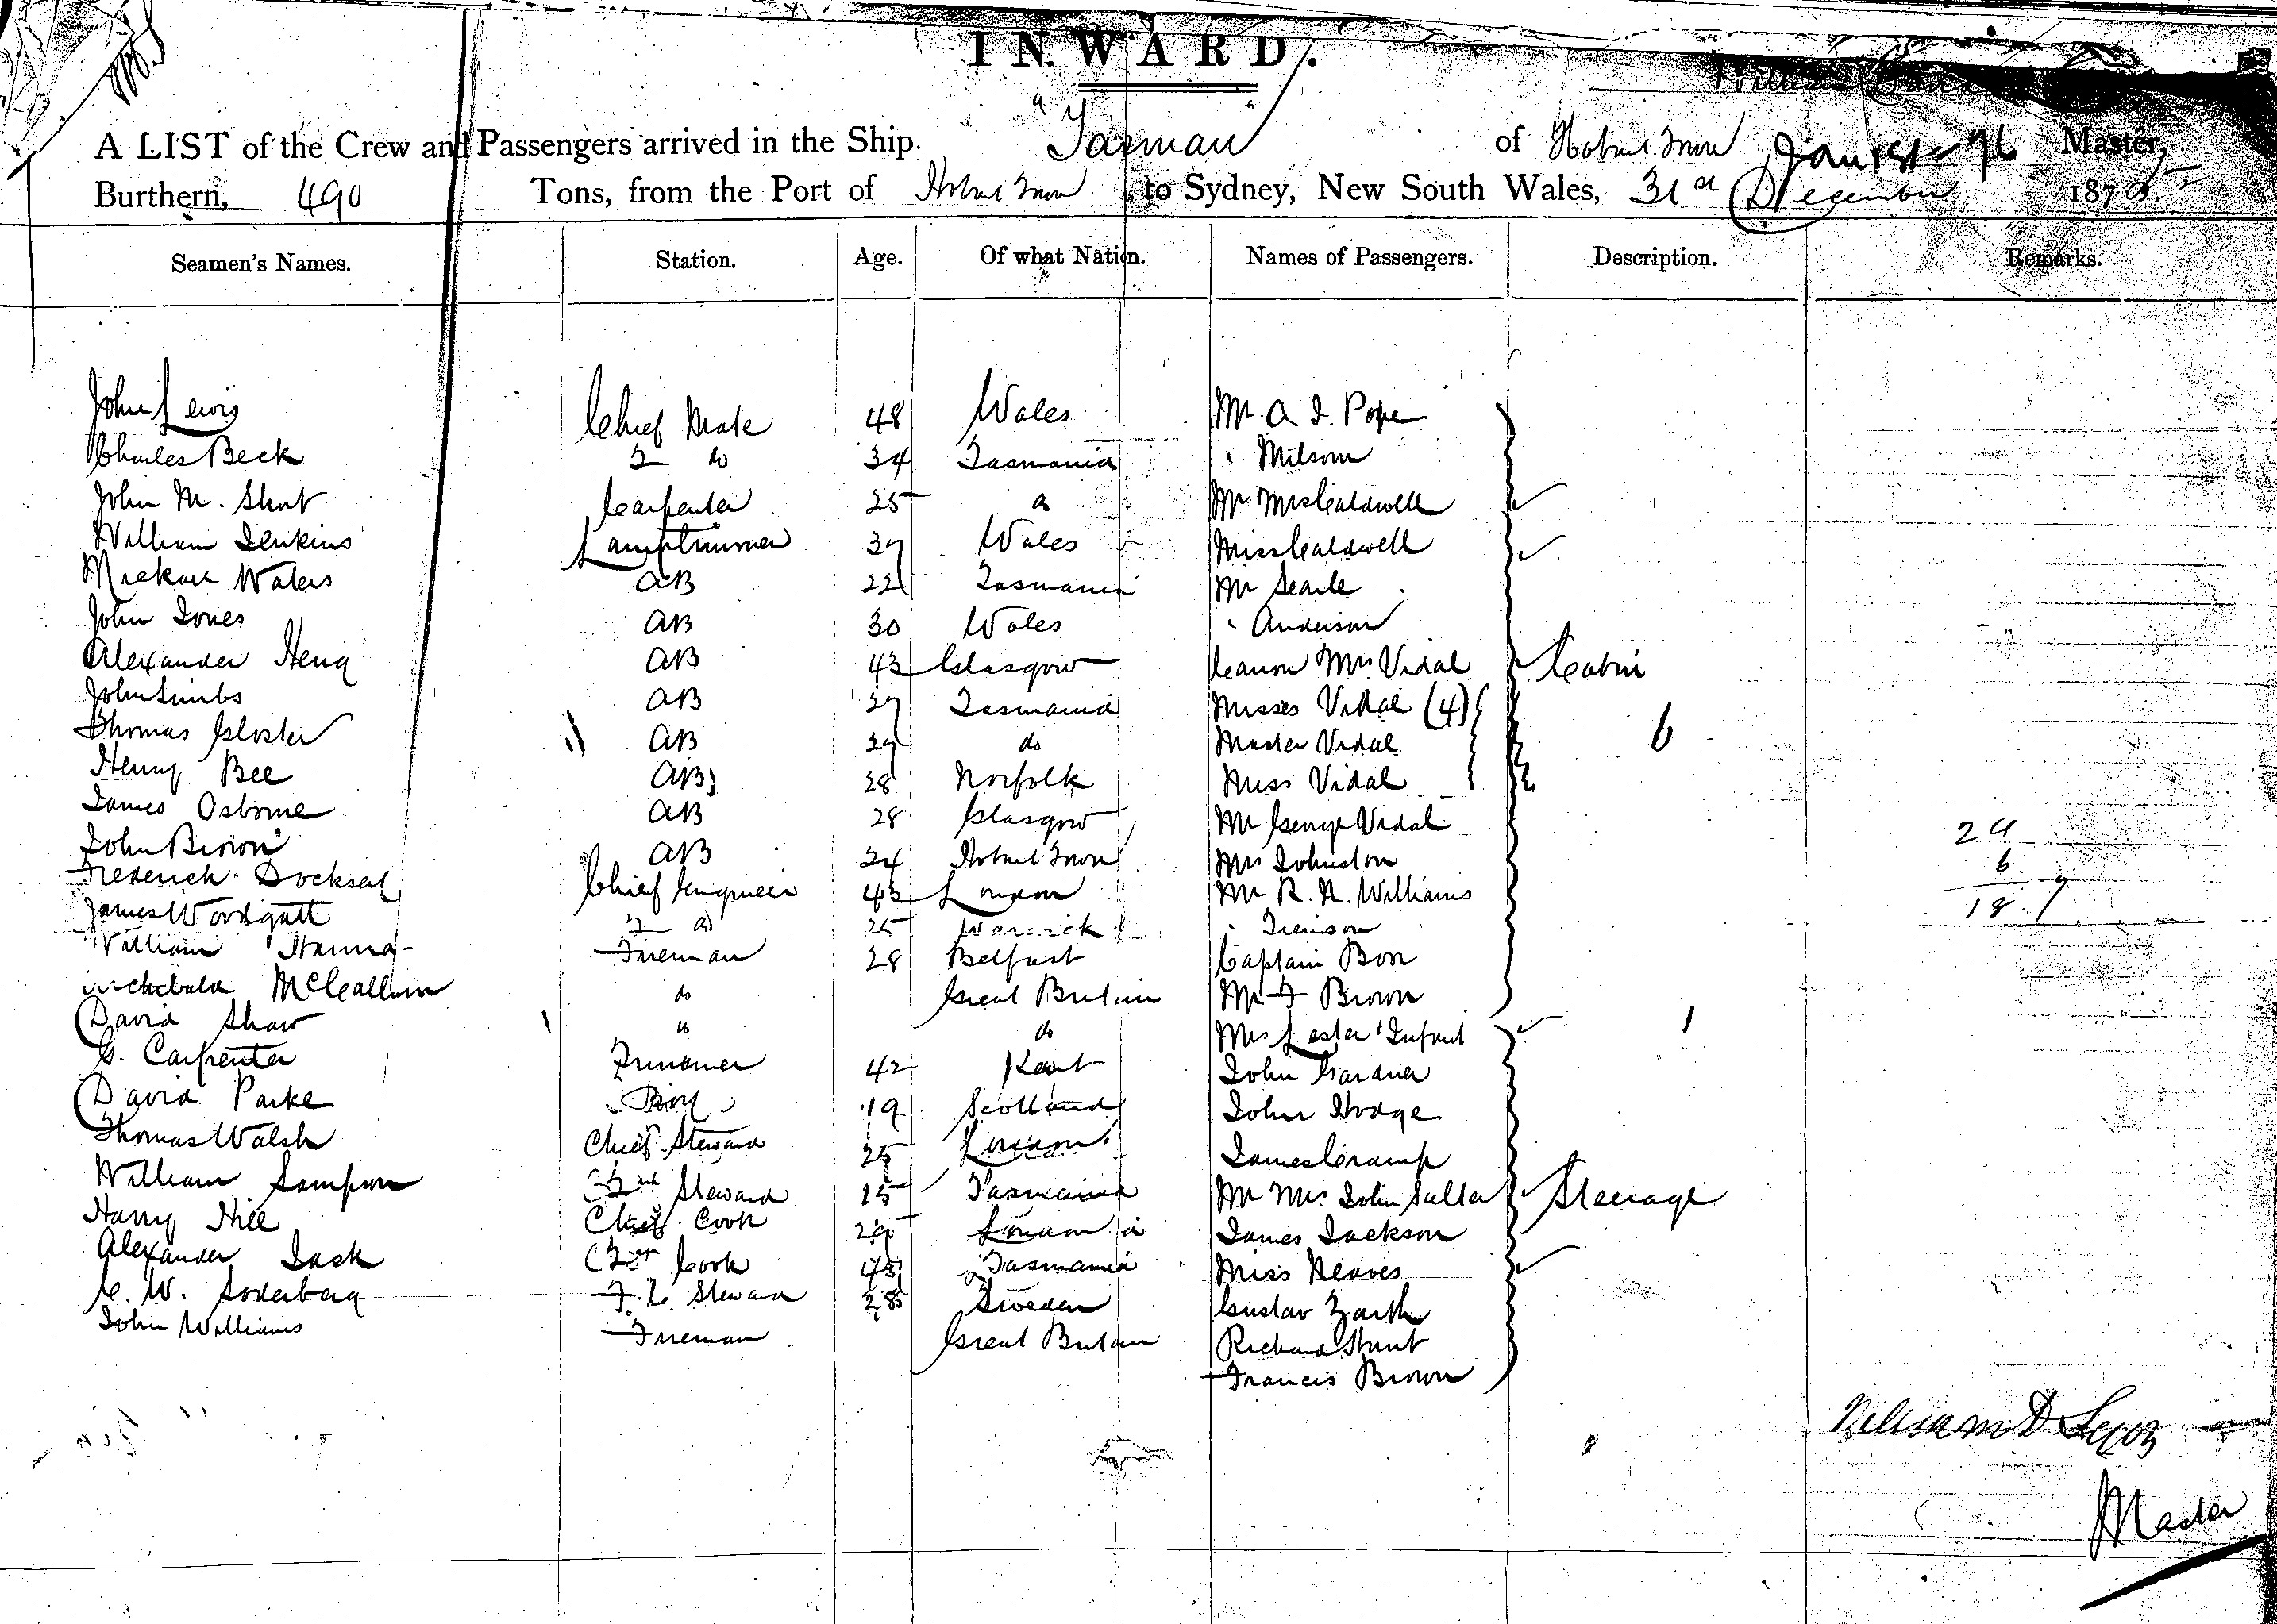 INWARD.
A LIST of the Crew and Passengers arrived in the Ship "Tasman" of Hobart Town Jan 1st 76 Master,
Burthern, 490 Tons, from the Port of Hobart Town to Sydney, New South Wales, 31st December 1875
Seamen's Names. Station. Age. Of what Nation. Names of Passengers. Description. Remarks.
John Lewis Chief Mate 48 Wales Mr. A. I. Pope
Charles Beck 2 do 34 Tasmania " Milsom
John M. Short Carpenter 25 do Mr Mrs Caldwell
William Jenkins Lamptrimmer 37 Wales Miss Caldwell
Michael Waters AB 22 Tasmania Mr Searle
John Jones AB 30 Wales " Anderson
Alexander AB 43 Glasgow Canon Mrs Vidal Cabin
John Limbs AB 37 Tasmania Misses Vidal (4)
Thomas Gloster AB 39 do Master Vidal 6
Henry Bee AB 28 Norfolk Miss Vidal
James Osborne AB 28 Glasgow Mr George Vidal 24
John Brown AB 24 Hobart Town Mrs Johnston 6
Frederick Chief Engineer 43 London Mr R. N. Williams 18
James Woodgatt 2 do 25 Warwick
William Hanna Fireman 28 Belfast Captain Bon
Archibald McCallum do Great Britain Mr F Brown
David Shaw do do Mrs Lester & Infant 1
G. Carpenter Trimmer 42 Kent John Gardner
David Parke Boy 19 Scotland John Hodge
Thomas Walsh Chief Steward 25 London James Cramp
William Sampson 2nd Steward 15 Tasmania Mr Mrs John Salter Steerage
Harry Hill Chief Cook 29 London James Jackson
Alexander Jack 2nd Cook Tasmania Miss Neaves
C. W. Soderberg F. C. Steward 28 Sweden Gustav Zarth
John Williams Fireman Great Britain Richard Hunt
Francis Brown
Master